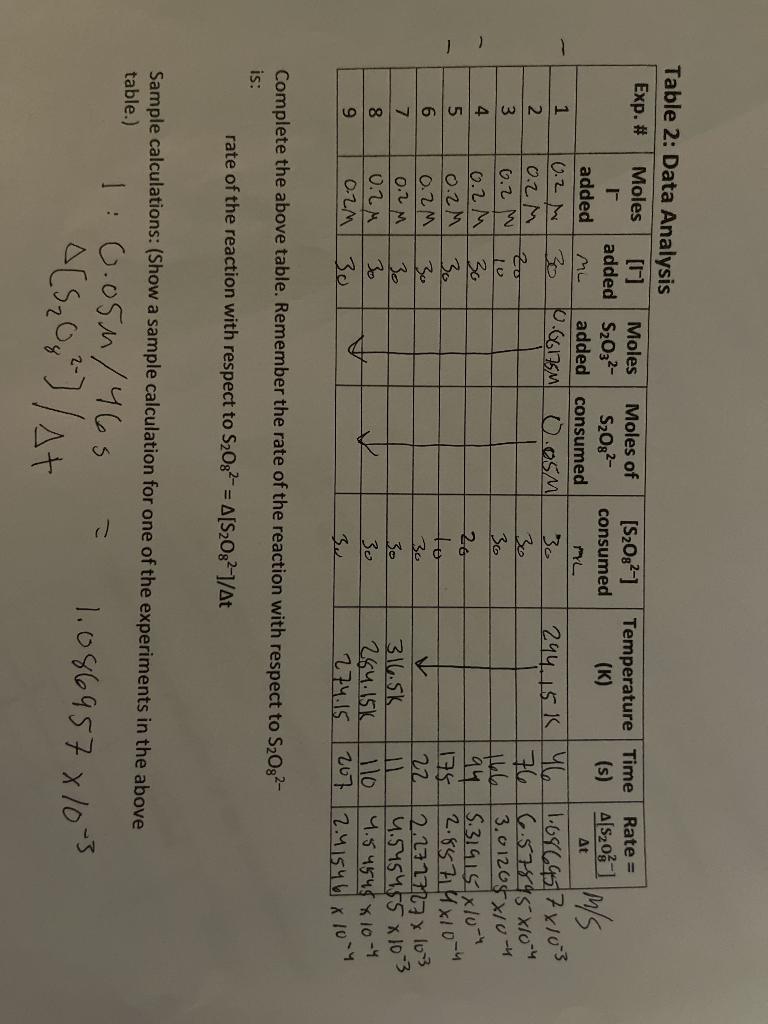 Table 2: Data Analysis
Exp. # Moles I⁻ added [I⁻] added mL Moles S₂O₃²⁻ added Moles of S₂O₈²⁻ consumed [S₂O₈²⁻] consumed mL Temperature (K) Time (s) Rate = Δ[S₂O₈²⁻] Δt M/S
1 0.2 M 30 0.00175M 0.05M 30 294.15 K 46 1.086957 x10⁻³
2 0.2 M 20 30 76 6.57895 x10⁻⁴
3 0.2 M 10 30 166 3.01205 x10⁻⁴
4 0.2 M 30 20 94 5.31915 x10⁻⁴
5 0.2 M 30 10 175 2.85714 x10⁻⁴
6 0.2 M 30 30 22 2.272727 x 10⁻³
7 0.2 M 30 30 316.5K 11 4.545455 x 10⁻³
8 0.2 M 30 30 284.15K 110 4.54545 x 10⁻⁴
9 0.2 M 30 30 274.15 207 2.41546 x 10⁻⁴
Complete the above table. Remember the rate of the reaction with respect to S₂O₈²⁻
is:
rate of the reaction with respect to S₂O₈²⁻ = Δ[S₂O₈²⁻]/Δt
Sample calculations: (Show a sample calculation for one of the experiments in the above
table.)
1 : 0.05M/46 s = 1.086957 x 10⁻³
Δ[S₂O₈²⁻] / Δt